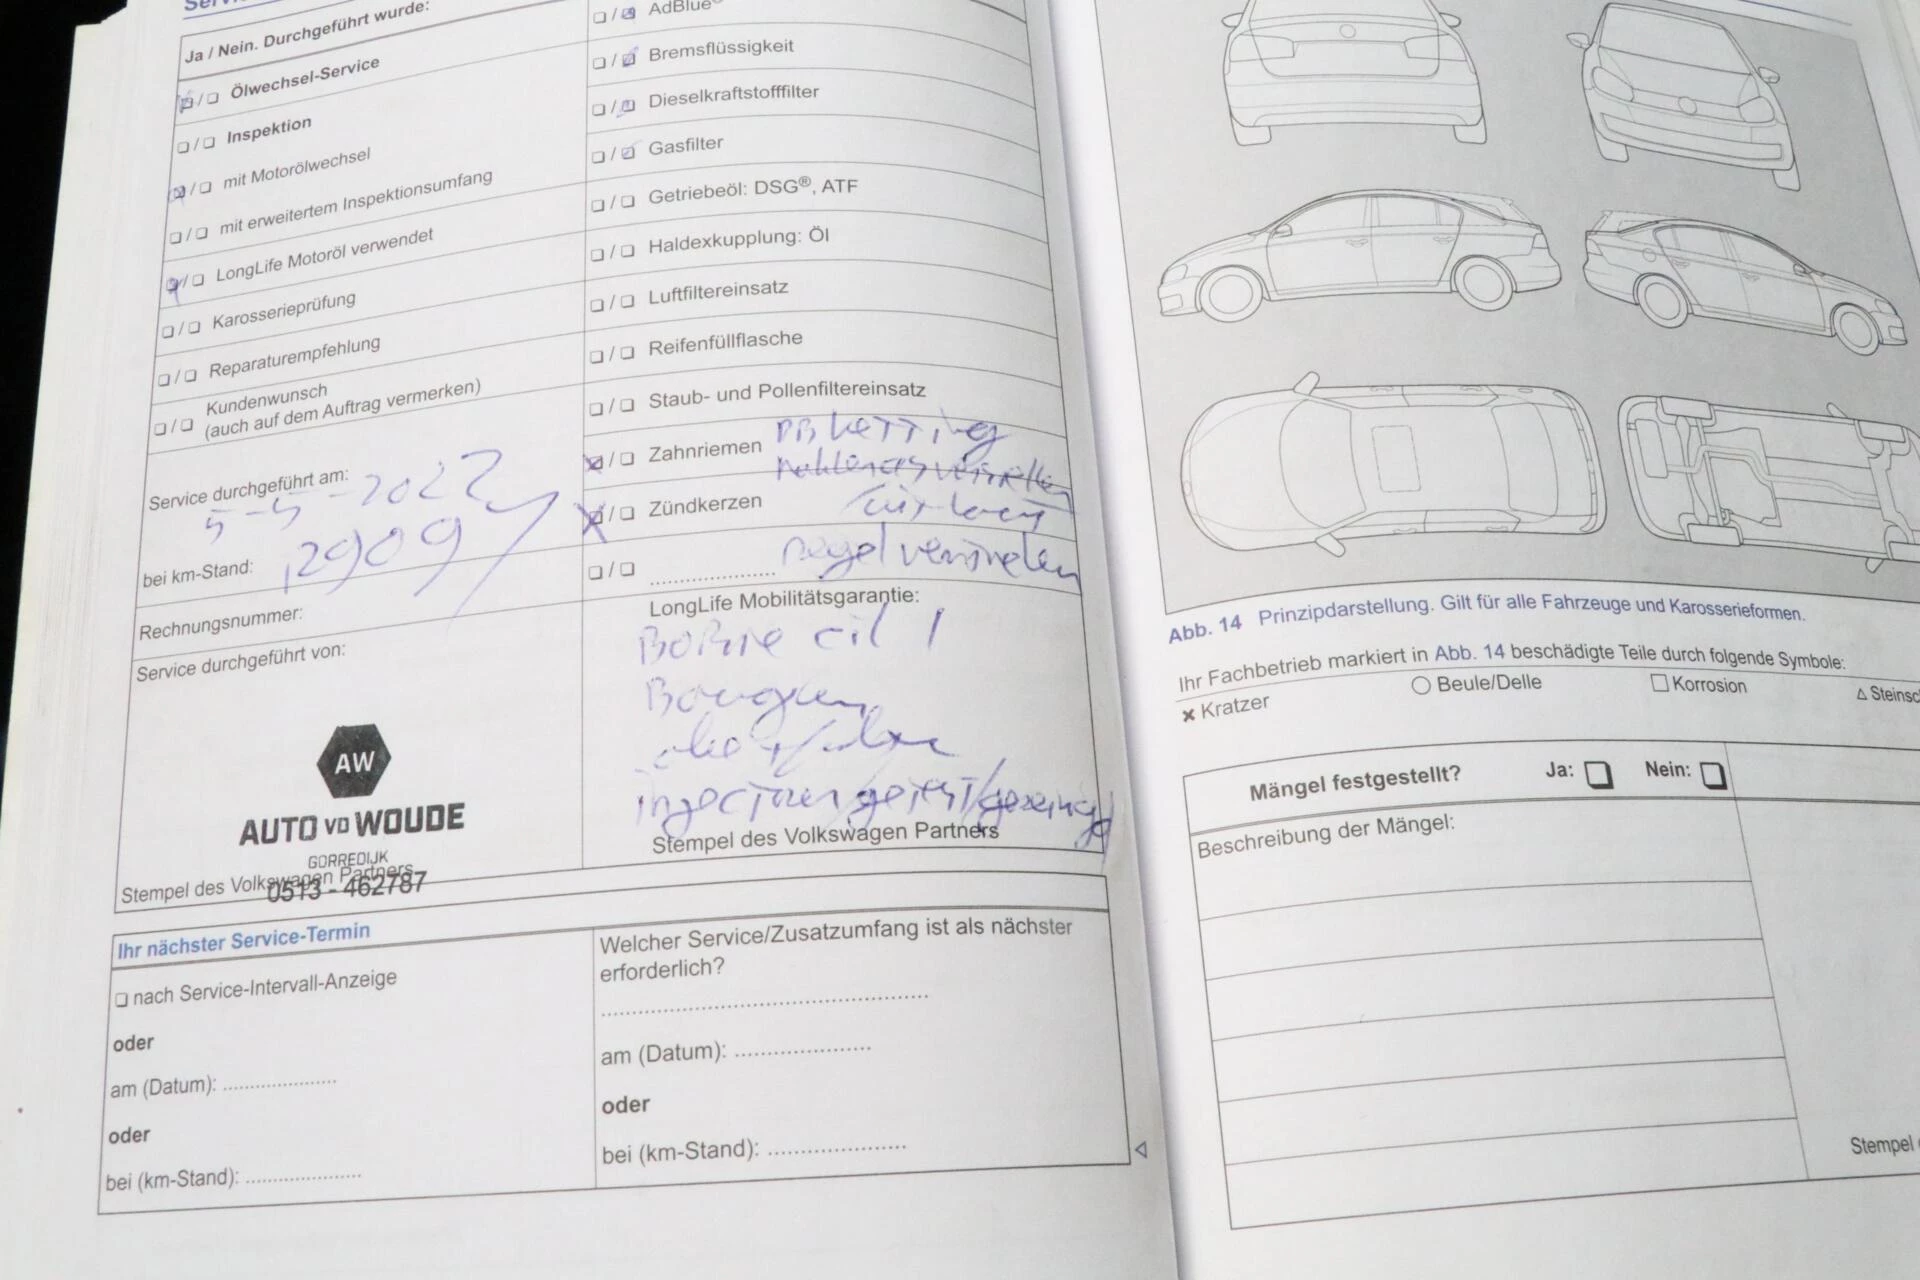 Ja / Nein. Durchgeführt wurde:
❏ / ❏ Ölwechsel-Service
❏ / ❏ Inspektion
❏ / ❏ mit Motorölwechsel
❏ / ❏ mit erweitertem Inspektionsumfang
❏ / ❏ LongLife Motoröl verwendet
❏ / ❏ Karosserieprüfung
❏ / ❏ Reparaturempfehlung
❏ / ❏ Kundenwunsch
(auch auf dem Auftrag vermerken)
Service durchgeführt am:
5-5-2022
bei km-Stand:
12909
Rechnungsnummer:
Service durchgeführt von:
AW
AUTO VD WOUDE
GORREDIJK
Stempel des Volkswagen Partners
0513 - 462787
❏ / ❏ AdBlue®
❏ / ❏ Bremsflüssigkeit
❏ / ❏ Dieselkraftstofffilter
❏ / ❏ Gasfilter
❏ / ❏ Getriebeöl: DSG®, ATF
❏ / ❏ Haldexkupplung: Öl
❏ / ❏ Luftfiltereinsatz
❏ / ❏ Reifenfüllflasche
❏ / ❏ Staub- und Pollenfiltereinsatz
❏ / ❏ Zahnriemen ketting
❏ / ❏ Zündkerzen
❏ / ❏ ....................
LongLife Mobilitätsgarantie:
cil 1
Stempel des Volkswagen Partners
Ihr nächster Service-Termin
❏ nach Service-Intervall-Anzeige
oder
am (Datum): ....................
oder
bei (km-Stand): ....................
Welcher Service/Zusatzumfang ist als nächster
erforderlich?
..................................................
am (Datum): ........................
oder
bei (km-Stand): ........................
Abb. 14 Prinzipdarstellung. Gilt für alle Fahrzeuge und Karosserieformen.
Ihr Fachbetrieb markiert in Abb. 14 beschädigte Teile durch folgende Symbole:
✖ Kratzer ○ Beule/Delle □ Korrosion △ Steinsc
Mängel festgestellt? Ja: ❏ Nein: ❏
Beschreibung der Mängel:
Stempel